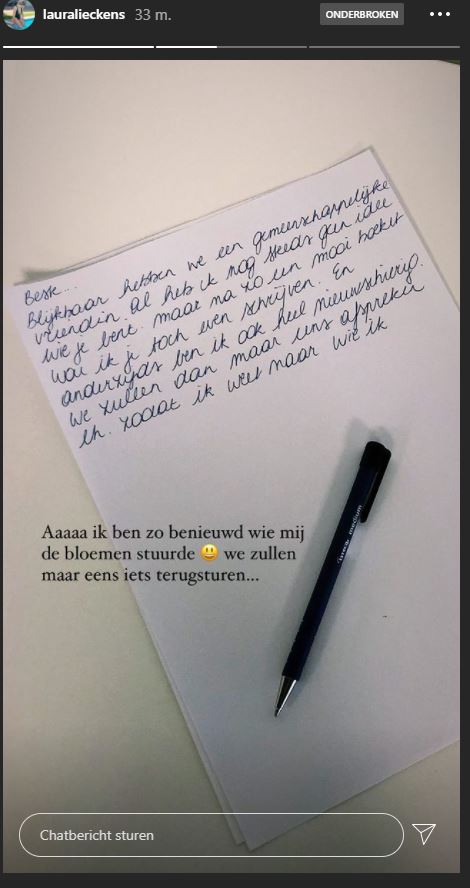 lauralieckens 33 m. ONDERBROKEN
Beste...
Blijkbaar hebben we een gemeenschappelijke
vriendin. al heb ik nog steeds geen idee
wie je bent. maar na zo een mooi boeket
wou ik je toch even schrijven. En
anderzijds ben ik ook heel nieuwschierig.
We zullen dan maar uns afspreken
eh. zodat ik weet naar wie ik
medium
Aaaaa ik ben zo benieuwd wie mij
de bloemen stuurde 😃 we zullen
maar eens iets terugsturen...
Chatbericht sturen